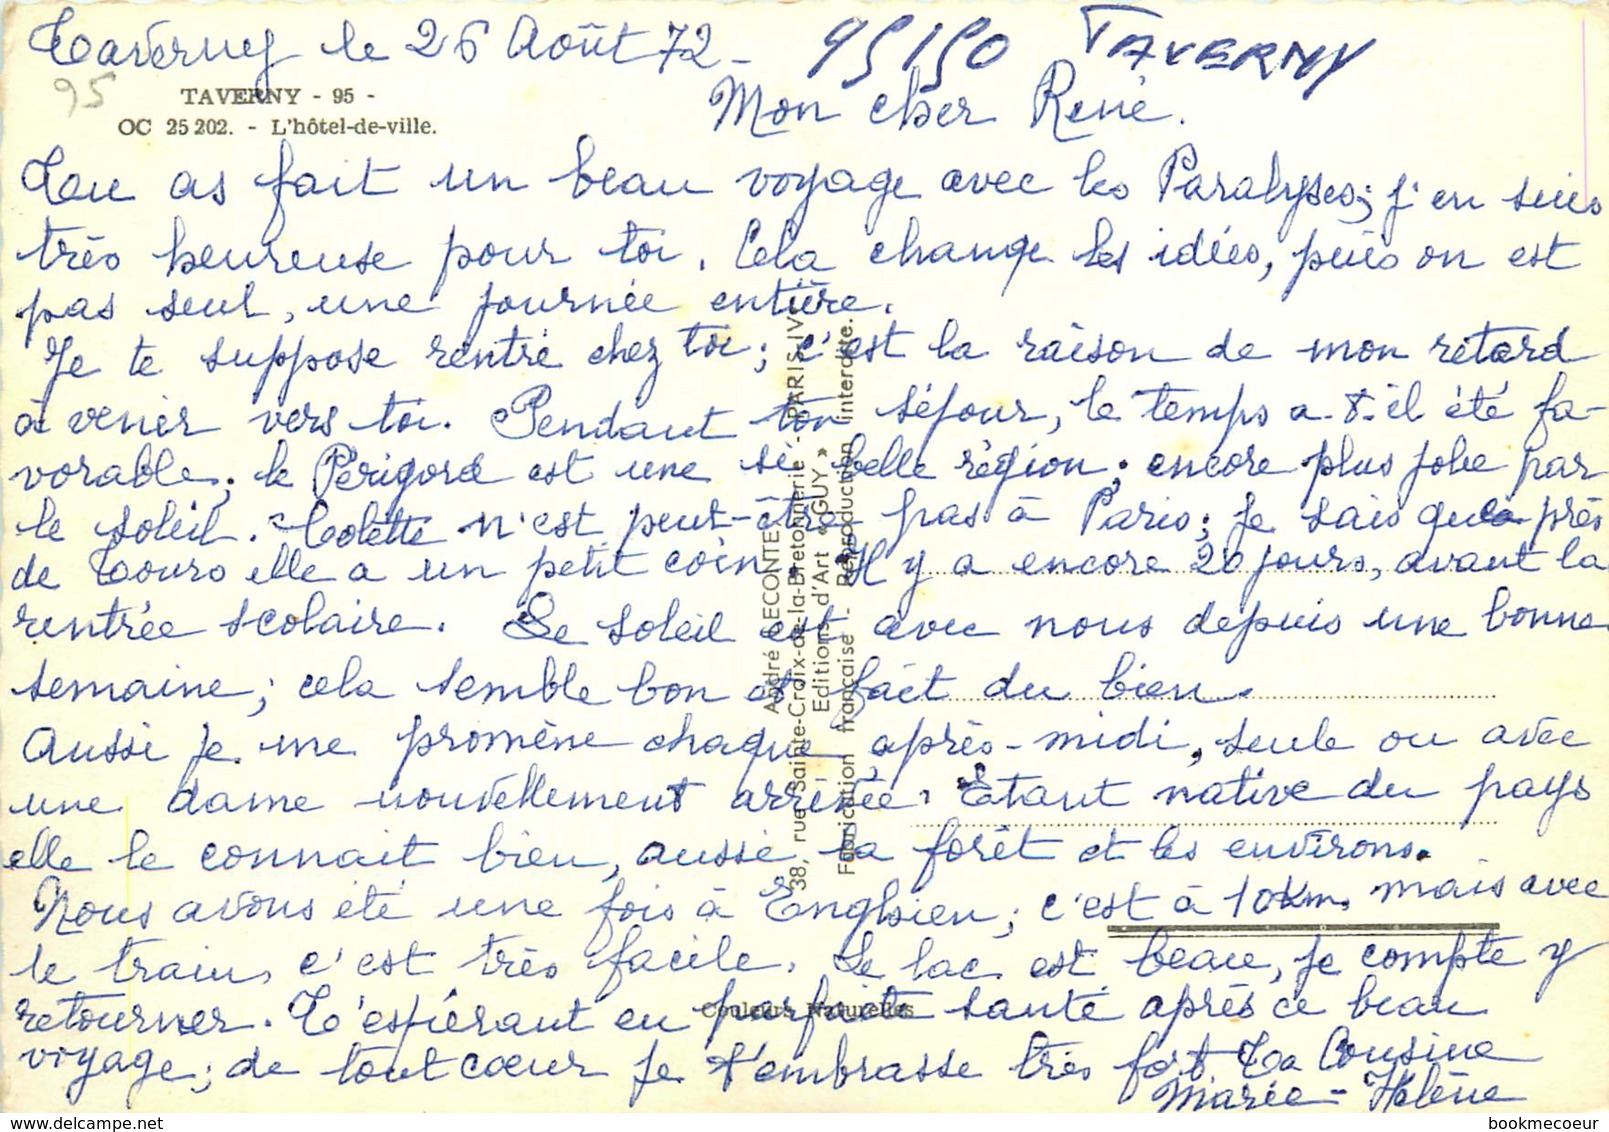 Taverny le 26 Août 72 - 95150 TAVERNY
95
TAVERNY - 95 -
OC 25 202. - L'hôtel-de-ville.
Mon cher René.
Tu as fait un beau voyage avec les Paralysés; j'en suis
très heureuse pour toi. Cela change les idées, puis on est
pas seul, une journée entière.
Je te suppose rentré chez toi; c'est la raison de mon retard
à venir vers toi. Pendant ton séjour, le temps a-t-il été fa-
vorable; le Périgord est une si belle région; encore plus jolie par
le soleil. Colette n'est peut-être pas à Paris; je sais que près
de Tours elle a un petit coin. Il y a encore 20 jours, avant la
rentrée scolaire. Le soleil est avec nous depuis une bonne
semaine; cela semble bon et fait du bien.
Aussi je me promène chaque après-midi, seule ou avec
une dame nouvellement arrivée. Etant native du pays
elle le connait bien, aussi la forêt et les environs.
Nous avons été une fois à Enghien; c'est à 10 Km. mais avec
le train, c'est très facile. Le lac est beau, je compte y
retourner. T'espérant en parfaite santé après ce beau
voyage; de tout cœur je t'embrasse très fort Ta Cousine
Marie-Hélène
André LECONTE
38, rue Sainte-Croix-de-la-Bretonnerie - PARIS-IVe
Editions d'Art « GUY »
Fabrication française - Reproduction interdite.
Couleurs Naturelles
bookmecoeur